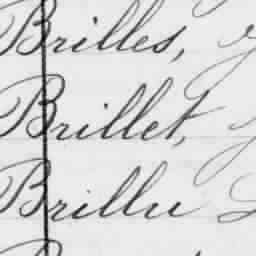 Brilles,
Brillet,
Brillu